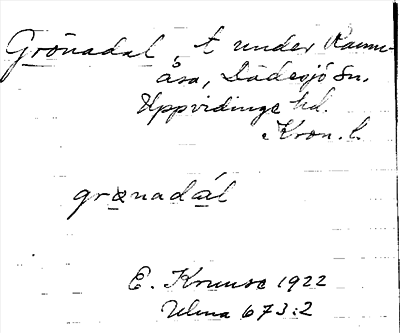 Grönadal, t under Ramm-
åsa, Dädesjö sn.
Uppvidinge hd.
Kron. l.
grønadál
E. Kruuse 1922
Ulma 673:2